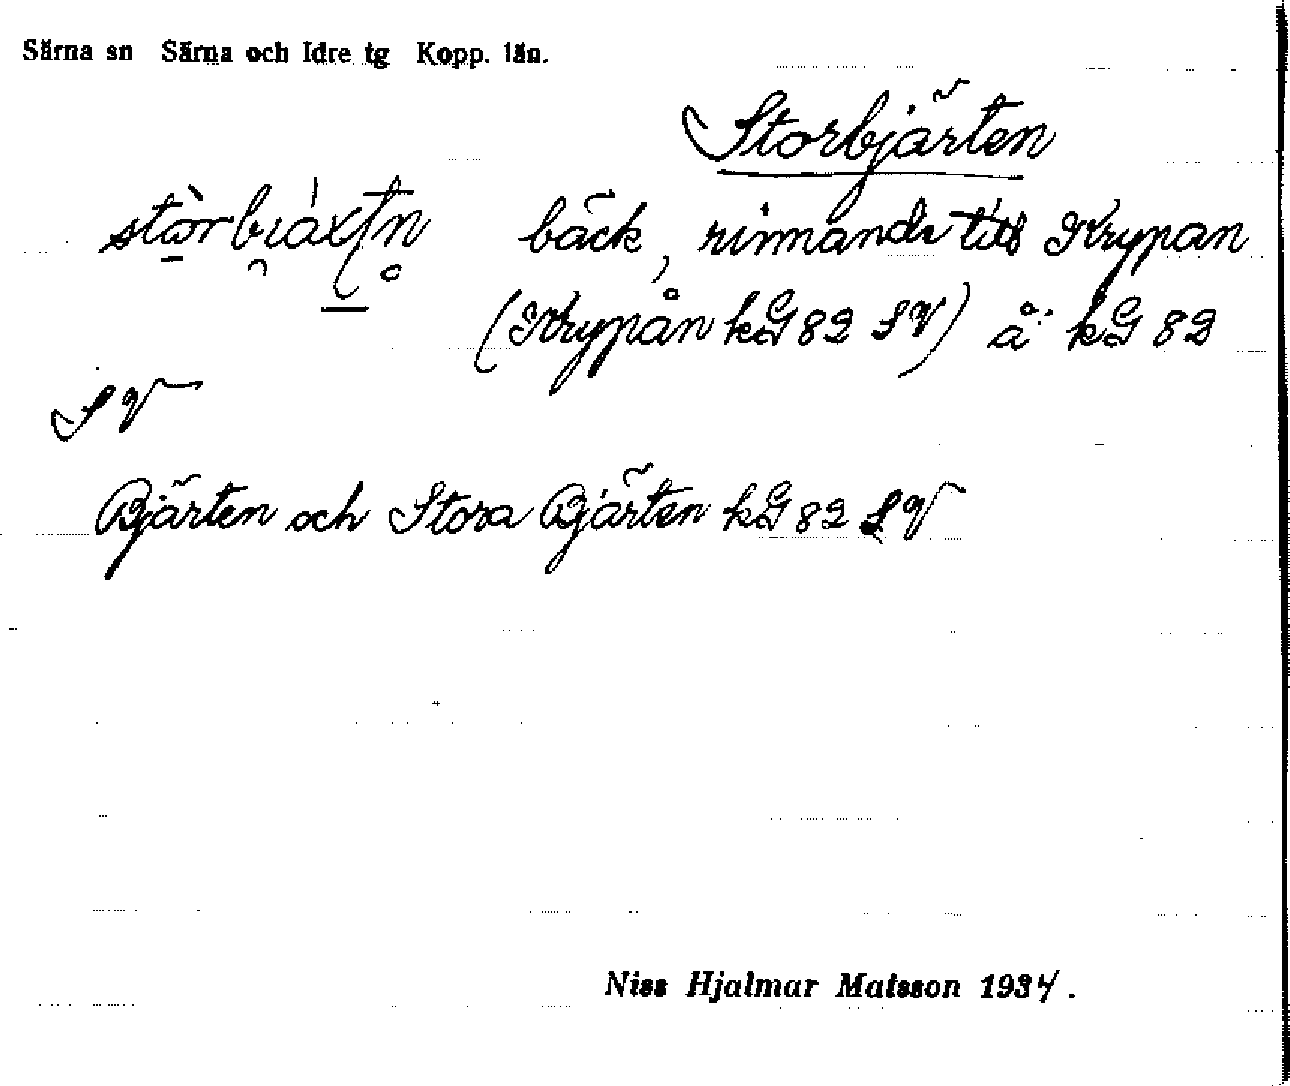 Särna sn Särna och Idre tg Kopp. län.
Storbjärten
bäck, rinnande till Krypan
(Krypån kG 82 SV) å: kG 82
SV
Bjärten och Stora Bjärten kG 82 SV
Niss Hjalmar Matsson 1934.